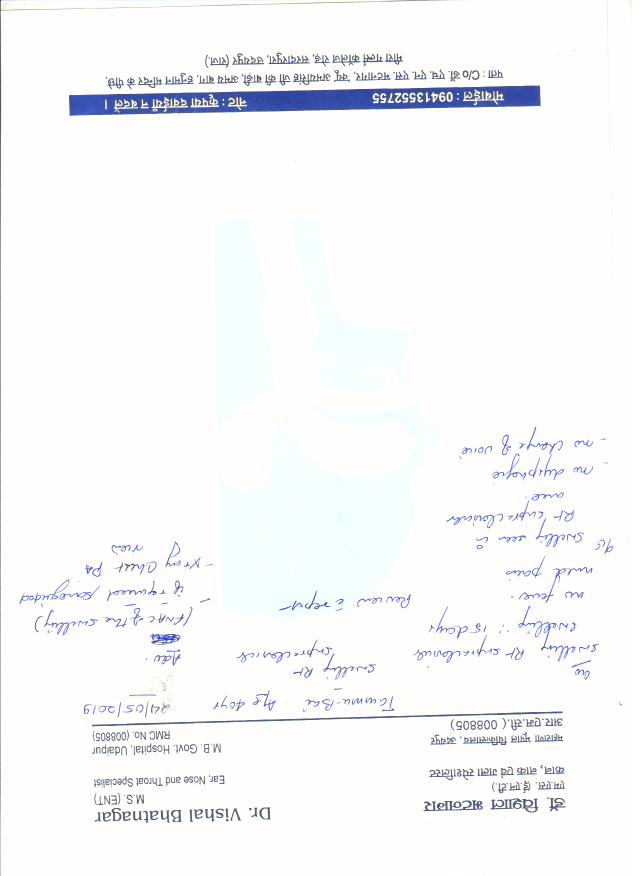 डॉ. विशाल भटनागर
एम.एस. (ई.एन.टी.)
कान, नाक एवं गला स्पेशीलिस्ट
महाराणा भूपाल चिकित्सालय, उदयपुर
आर.एम.सी.( 008805)
Dr. Vishal Bhatnagar
M.S. (ENT)
Ear, Nose and Throat Specialist
M.B. Govt. Hospital, Udaipur
RMC No. (008805)
Age 40yr
24/05/2019
c/o
swelling Rt supraclavicular
swelling : 15 days
no fever
mild pain
o/e swelling seen in
Rt supraclavicular
area.
- no dysphagia
- no change of voice
swelling Rt
supraclavicular
Review c̄ report
Adv.
(FNAC of the swelling)
- if required
- Xray Chest PA
view
मोबाईल : 09413552755
नोट : कृपया दवाईयाँ न बदलें ।
पता : C/o डॉ. एच. एन. एस. भटनागर, 'क्यू' अभयसिंह जी की बाड़ी, अभय बाग, हनुमान मन्दिर के पीछे,
मीरा गर्ल्स कॉलेज रोड, सरदारपुरा, उदयपुर (राज.)